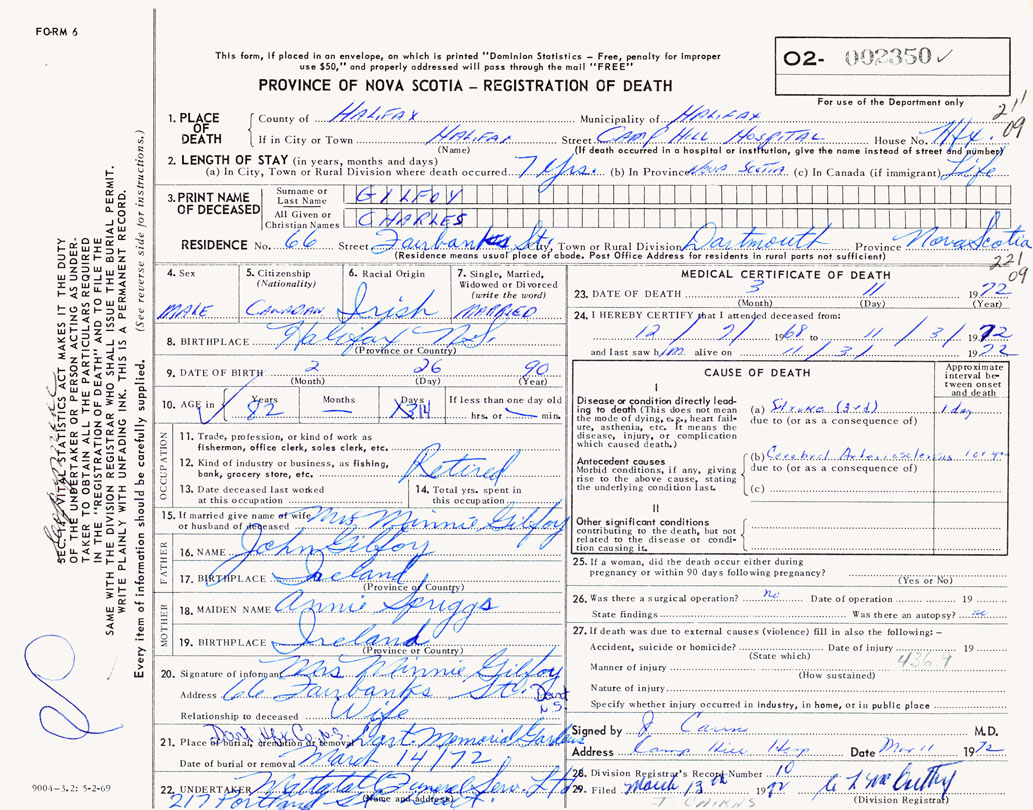 FORM 6
This form, if placed in an envelope, on which is printed "Dominion Statistics – Free, penalty for improper
use $50," and properly addressed will pass through the mail "FREE"
O2- 002350 ✓
PROVINCE OF NOVA SCOTIA – REGISTRATION OF DEATH
For use of the Department only
211
09
1. PLACE OF DEATH
County of HALIFAX Municipality of HALIFAX
If in City or Town HALIFAX Street CAMP HILL HOSPITAL House No. Hfx.
(Name) (If death occurred in a hospital or institution, give the name instead of street and number)
2. LENGTH OF STAY (in years, months and days)
(a) In City, Town or Rural Division where death occurred 7 Yrs. (b) In Province Nova Scotia (c) In Canada (if immigrant) Life
3. PRINT NAME OF DECEASED
Surname or Last Name GILFOY
All Given or Christian Names CHARLES
RESIDENCE No. 66 Street Fairbanks St. City, Town or Rural Division Dartmouth Province Nova Scotia
(Residence means usual place of abode. Post Office Address for residents in rural parts not sufficient)
221
09
4. Sex MALE
5. Citizenship (Nationality) CANADIAN
6. Racial Origin Irish
7. Single, Married, Widowed or Divorced (write the word) MARRIED
8. BIRTHPLACE Halifax N.S.
(Province or Country)
9. DATE OF BIRTH 2 26 90
(Month) (Day) (Year)
10. AGE in Years 82 Months — Days X314 If less than one day old hrs. or min.
OCCUPATION
11. Trade, profession, or kind of work as
fisherman, office clerk, sales clerk, etc.
12. Kind of industry or business, as fishing,
bank, grocery store, etc. Retired
13. Date deceased last worked
at this occupation
14. Total yrs. spent in
this occupation
15. If married give name of wife
or husband of deceased Mrs Minnie Gilfoy
FATHER
16. NAME John Gilfoy
17. BIRTHPLACE Ireland
(Province or Country)
MOTHER
18. MAIDEN NAME Annie Spriggs
19. BIRTHPLACE Ireland
(Province or Country)
20. Signature of informant Mrs Minnie Gilfoy
Address 66 Fairbanks St. Dart N.S.
Relationship to deceased Wife
21. Place of burial, cremation or removal Dart Hfx Co. N.S. Dart. Memorial Gardens
Date of burial or removal March 14/72
22. UNDERTAKER Mattatal Funeral Serv. Ltd
217 Portland St.
(Name and address)
MEDICAL CERTIFICATE OF DEATH
23. DATE OF DEATH 3 11 1972
(Month) (Day) (Year)
24. I HEREBY CERTIFY that I attended deceased from:
12 / 7 / 1968 to 11 / 3 / 1972
and last saw him alive on 11 / 3 / 1972
CAUSE OF DEATH
Approximate interval between onset and death
I
Disease or condition directly leading
to death (This does not mean
the mode of dying, e.g., heart failure,
asthenia, etc. It means the
disease, injury, or complication
which caused death.)
(a) Stroke (3rd) 1 day
due to (or as a consequence of)
Antecedent causes
Morbid conditions, if any, giving
rise to the above cause, stating
the underlying condition last.
(b) Cerebral Arteriosclerosis
due to (or as a consequence of)
(c)
II
Other significant conditions
contributing to the death, but not
related to the disease or condition
causing it.
25. If a woman, did the death occur either during
pregnancy or within 90 days following pregnancy?
(Yes or No)
26. Was there a surgical operation? no Date of operation 19
State findings Was there an autopsy? no
27. If death was due to external causes (violence) fill in also the following: –
Accident, suicide or homicide? Date of injury 19
(State which)
436.9
Manner of injury
(How sustained)
Nature of injury
Specify whether injury occurred in industry, in home, or in public place
Signed by J Cairns M.D.
Address Camp Hill Hosp Date Mar 11 1972
28. Division Registrar's Record Number 10
29. Filed March 13th 1972
(Division Registrar)
J CAIRNS
SEC. VITAL STATISTICS ACT MAKES IT THE DUTY
OF THE UNDERTAKER OR PERSON ACTING AS UNDERTAKER
TO OBTAIN ALL THE PARTICULARS REQUIRED
IN THE "REGISTRATION OF DEATH" AND TO FILE THE
SAME WITH THE DIVISION REGISTRAR WHO SHALL ISSUE THE BURIAL PERMIT.
WRITE PLAINLY WITH UNFADING INK. THIS IS A PERMANENT RECORD.
Every item of information should be carefully supplied. (See reverse side for instructions.)
9004-3.2: 5-2-69